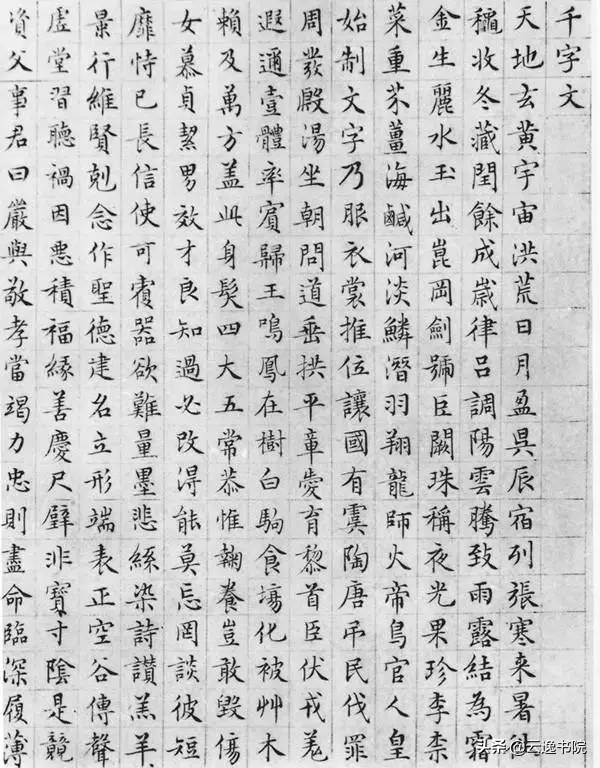 千字文
天地玄黄宇宙洪荒日月盈昃辰宿列張寒来暑往
穐收冬藏閏餘成歲律吕調陽雲騰致雨露結為霜
金生麗水玉出崑岡劍號巨闕珠稱夜光果珍李柰
菜重芥薑海鹹河淡鱗潛羽翔龍師火帝鳥官人皇
始制文字乃服衣裳推位讓國有虞陶唐弔民伐罪
周發殷湯坐朝問道垂拱平章愛育黎首臣伏戎羌
遐邇壹體率賓歸王鳴鳳在樹白駒食場化被艸木
賴及萬方盖此身髮四大五常恭惟鞠養豈敢毀傷
女慕貞潔男效才良知過必改得能莫忘罔談彼短
靡恃己長信使可覆器欲難量墨悲絲染詩讚羔羊
景行維賢剋念作聖德建名立形端表正空谷傳聲
虚堂習聽禍因惡積福緣善慶尺璧非寶寸陰是競
資父事君曰嚴與敬孝當竭力忠則盡命臨深履薄
头条@云逸书院